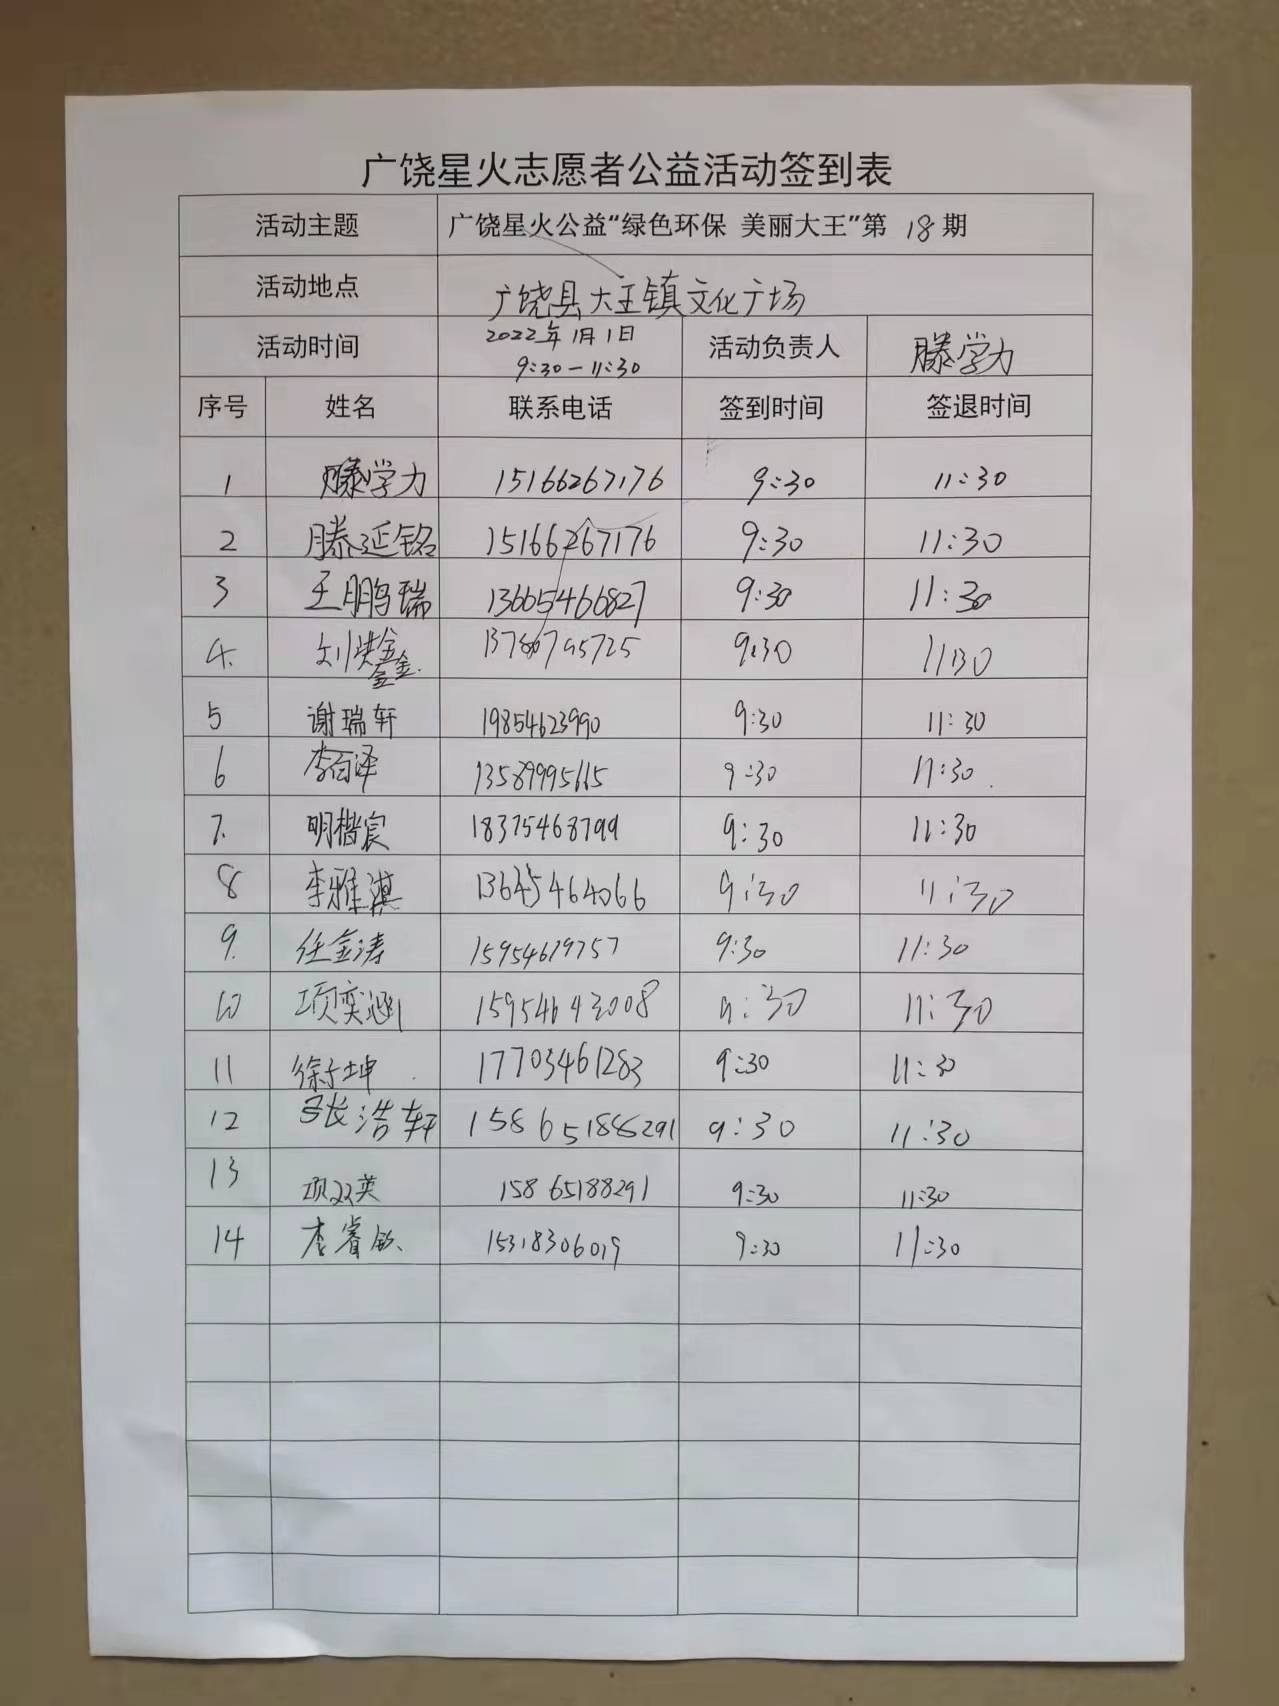 广饶星火志愿者公益活动签到表
活动主题 广饶星火公益“绿色环保 美丽大王”第 18 期
活动地点 广饶县大王镇文化广场
活动时间 2022年1月1日 9:30-11:30 活动负责人 滕学力
序号 姓名 联系电话 签到时间 签退时间
1 滕学力 15166267176 9:30 11:30
2 滕延铭 15166267176 9:30 11:30
3 王鹏瑞 13665466827 9:30 11:30
4. 9:30 11:30
5 谢瑞轩 19854623990 9:30 11:30
6 李百泽 13589995665 9:30 11:30
7. 明楷宸 18375468799 9:30 11:30
8 李雅淇 13645464066 9:30 11:30
9. 任金涛 15954619757 9:30 11:30
10 项奕涵 15954643008 9:30 11:30
11 徐子坤 17703461283 9:30 11:30
12 张浩轩 15865188291 9:30 11:30
13 项双英 15865188291 9:30 11:30
14 李睿钦 15318306019 9:30 11:30